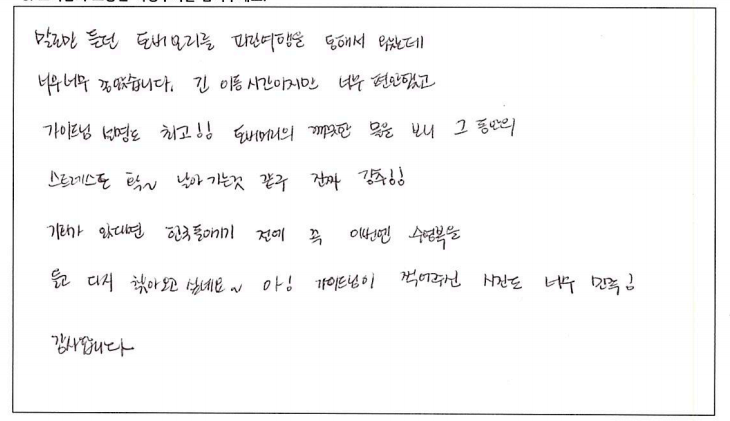 말로만 듣던 토버모리를 파란여행을 통해서 왔는데
너무너무 좋았습니다. 긴 이동시간이지만 너무 편안했고
가이드님 설명도 최고!! 토버머리의 깨끗한 물을 보니 그 동안의
스트레스도 탁~ 날아가는것 같구 진짜 강추!!
기회가 온다면 한국돌아가기 전에 꼭 이번엔 수영복을
들고 다시 찾아오고 싶네요~ 아! 가이드님이 찍어주신 사진도 너무 만족!
감사합니다